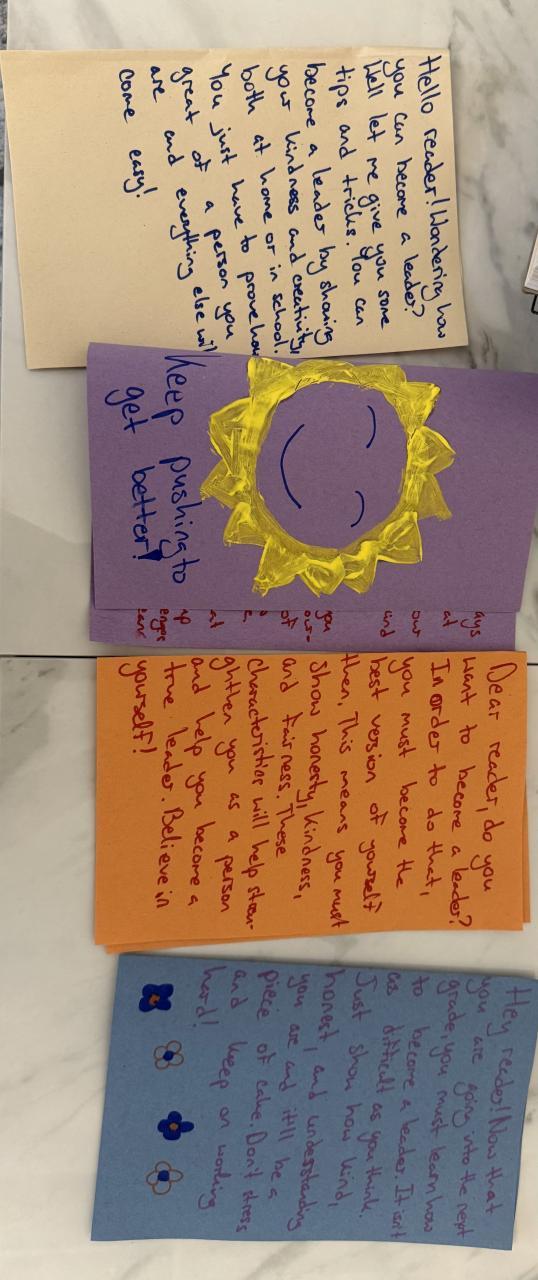 Hello reader! Wondering how
you can become a leader?
Well let me give you some
tips and tricks. You can
become a leader by sharing
your kindness and creativity,
both at home or in school.
You just have to prove how
great of a person you
are and everything else will
come easy!
Keep pushing to
get better!
ays
at
our
and
you
our-
of
at
up
enges
Dear reader, do you
want to become a leader?
In order to do that,
you must become the
best version of yourself
then. This means you must
show honesty, kindness,
and fairness. These
characteristics will help stren-
ghten you as a person
and help you become a
true leader. Believe in
yourself!
Hey reader! Now that
you are going into the next
grade, you must learn how
to become a leader. It isn't
as difficult as you think.
Just show how kind,
honest, and understanding
you are and it'll be a
piece of cake. Don't stress
and keep on working
hard!